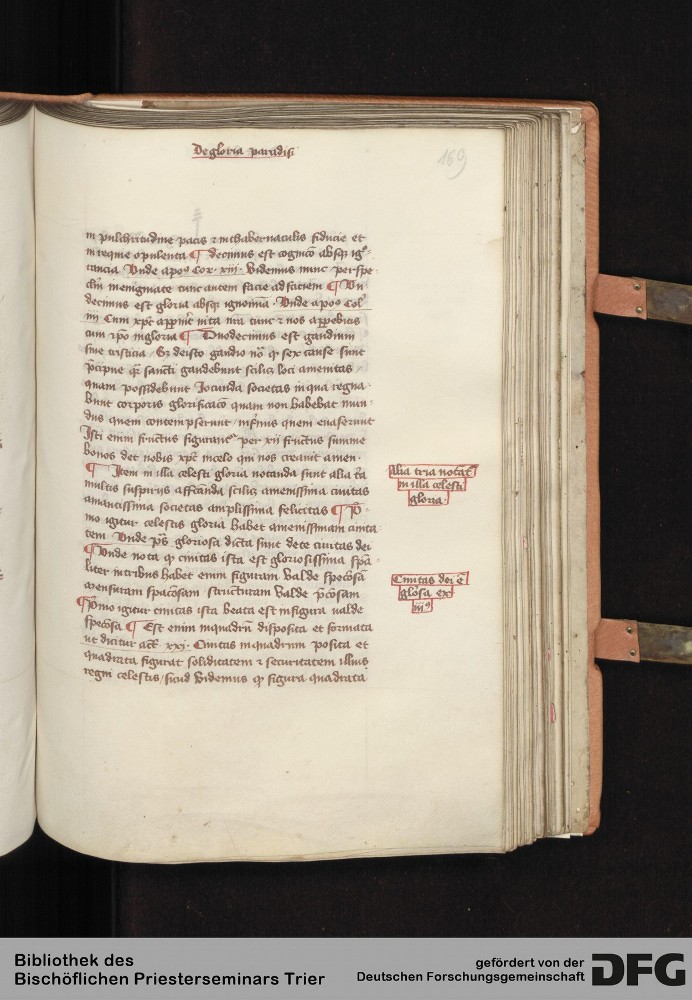 De gloria paradisi
169
in pulchritudine pacis ⁊ in thabernaculis fiducie et
in requie opulenta ¶ decimus est cognico absqꝫ ig
rancia Vnde apoꝰ Cor xiii Videmus nunc per spe
clm in enigmate tunc autem facie ad faciem ¶ Vn
decimus est gloria absqꝫ ignominia Vnde apoꝰ Col
iii Cum xpc apparuit uita nra tunc ⁊ nos apparebitis
cum ipo in gloria ¶ Duodecimus est gaudium
sine tristicia / Et de isto gaudio no ꝙ sex cause sunt
pcipue qr sancti gaudebunt scilicz loci amenitas
quam possidebunt Jocunda societas in qua regna
bunt corporis glorificaco quam non habebat mun
dus quem contempserunt / infernus quem euaserunt
Isti enim fructus figurantr per xii fructus summe
bonos det nobis xpc in celo qui nos creauit amen
¶ Item in illa celesti gloria notanda sunt alia tria
multis suspirijs affectanda scilicz amenissima ciuitas
amantissima societas amplissima felicitas ¶ Pri
mo igitur celestis gloria habet amenissimam ciuita
tem Vnde ps gloriosa dicta sunt de te ciuitas dei
¶ Vnde nota ꝙ ciuitas ista est gloriosissima spa
liter in tribus habet enim figuram valde speciosam
mensuram spaciosam structuram valde pciosam
¶ Primo igitur ciuitas ista beata est in figura ualde
speciosa ¶ Est enim in quadrum disposita et formata
ut dicitur xxi Ciuitas in quadrum posita et
quadrata figurat soliditatem ⁊ securitatem illius
regni celestis / sicud Videmus ꝙ figura quadrata
Alia tria notat
in illa celesti
gloria
Ciuitas dei e
glosa ex
iiiꝰ
Bibliothek des
Bischöflichen Priesterseminars Trier
gefördert von der
Deutschen Forschungsgemeinschaft
DFG